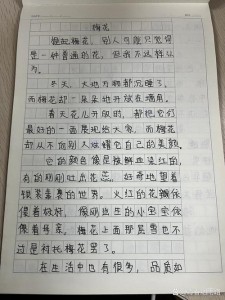 梅花
提起梅花，别人可能只觉得
是一种普通的花，但我不这样认
为。
冬天，大地万物都沉睡了，
而梅花却一朵朵地开放在墙角。
春天花儿开放时，都把它们
最好的一面展现给大家，而梅花
却从不向别人炫耀它自己的美丽
它的颜色像是被鲜血染红的，
有的刚刚吐出花蕊，好奇地望着
银装素裹的世界。火红的花瓣依
偎着枝干，像刚出生的小宝宝依
偎着母亲。梅花上面那层雪也不
过是衬托梅花罢了。
在生活中也有很多，品质如